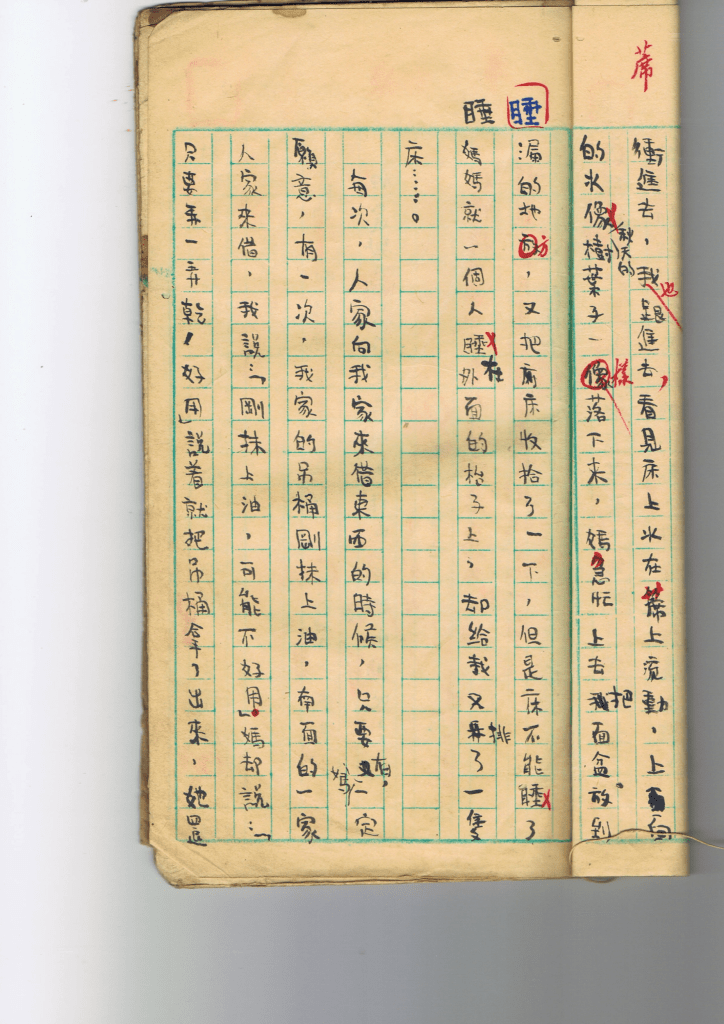 蓆
衝進去，我也跟進去，看見床上水在蓆上流動，上面
的水像秋天的樹葉子一樣落下來，媽急忙上去把面盆放到
睡
漏的地方，又把床收拾了一下，但是床不能睡了
睡
媽媽就一個人睡在外面的枱子上，却給我又排了一隻
床……。
每次，人家向我家來借東西的時候，只要有，媽一定
願意，有一次，我家的吊桶剛抹上油，南面的一家
人家來借，我說：「剛抹上油，可能不好用」媽却說：「
只要弄一弄乾，好用」說着就把吊桶拿了出來，她還